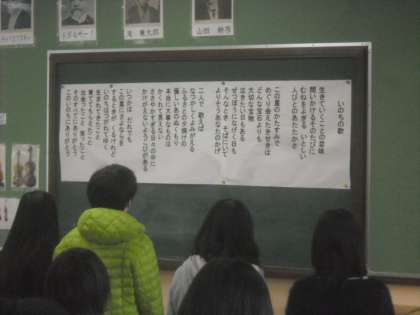 滝 廉太郎
山田 耕筰
いのちの歌
生きていくことの意味
問いかけるそのたびに
むねをよぎる いとしい
人びとのあたたかさ
この星のかたすみで
めぐり会えたきせきは
どんな宝石よりも
大切な宝物
泣きたい日もある
ぜつぼうになげく日も
そんなときそばにいて
よりそうあなたのかげ
二人で 歌えば
なつかしくよみがえる
ふるさとの夕焼けの
優しいあのぬくもり
本当にだいじなものは
かくれて見えない
ささやかすぎる日々の中に
かけがえのないよろこびがある
いつかは だれでも
この星にさよならを
するときが来るけれど
いのちはつがれてゆく
生まれてきたこと
育ててもらえたこと
出会ったこと 笑ったこと
そのすべてにありがとう
このいのちにありがとう